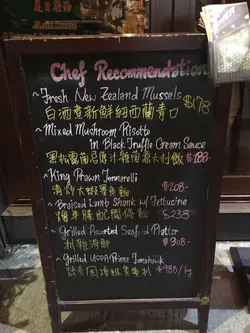 Chef Recommendation
~Fresh New Zealand Mussels
白酒煮新鮮紐西蘭青口 $178
~Mixed Mushroom Risotto
in Black Truffle Cream Sauce
黑松露 雜菌意大利飯 $188
~King Prawn Tonnarelli
大蝦 $208-
~Braised Lamb Shank w/ Fettucine
燴羊膝配闊條麵 $238-
~Grilled Assorted Seafood Platter
扒雜海鮮 $308-
~Grilled USDA Prime Tomahawk
美國頂級 扒 $988/kg